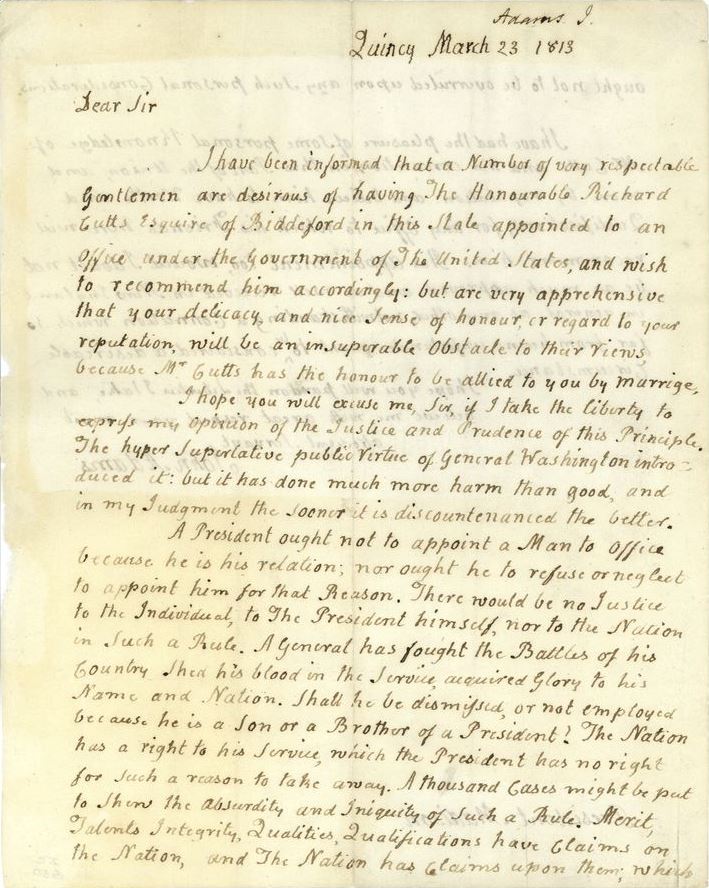 Adams J.
Quincy March 23 1813
Dear Sir
I have been informed that a Number of very respectable
Gentlemen are desirous of having The Honourable Richard
Cutts Esquire of Biddeford in this State appointed to an
Office under the Government of The United States, and wish
to recommend him accordingly: but are very apprehensive
that your delicacy, and nice Sense of honour, or regard to your
reputation, will be an insuperable Obstacle to their Views
because Mr Cutts has the honour to be allied to you by marrige,
I hope you will excuse me, Sir, if I take the liberty to
express my opinion of the Justice and Prudence of this Principle.
The hyper Superlative public Virtue of General Washington intro=
duced it: but it has done much more harm than good, and
in my Judgment the sooner it is discountenanced the better.
A President ought not to appoint a Man to Office
because he is his relation; nor ought he to refuse or neglect
to appoint him for that Reason. There would be no Justice
to the Individual, to The President himself, nor to the Nation
in Such a Rule. A General has fought the Battles of his
Country Shed his blood in the Service, acquired Glory to his
Name and Nation. Shall he be dismissed, or not employed
because he is a Son or a Brother of a President? The Nation
has a right to his Service, which the President has no right
for such a reason to take away. A thousand Cases might be put
to Shew the absurdity and Iniquity of Such a Rule. Merit,
Talents Integrity, Qualities, Qualifications have Claims on
the Nation, and The Nation has Claims upon them; which